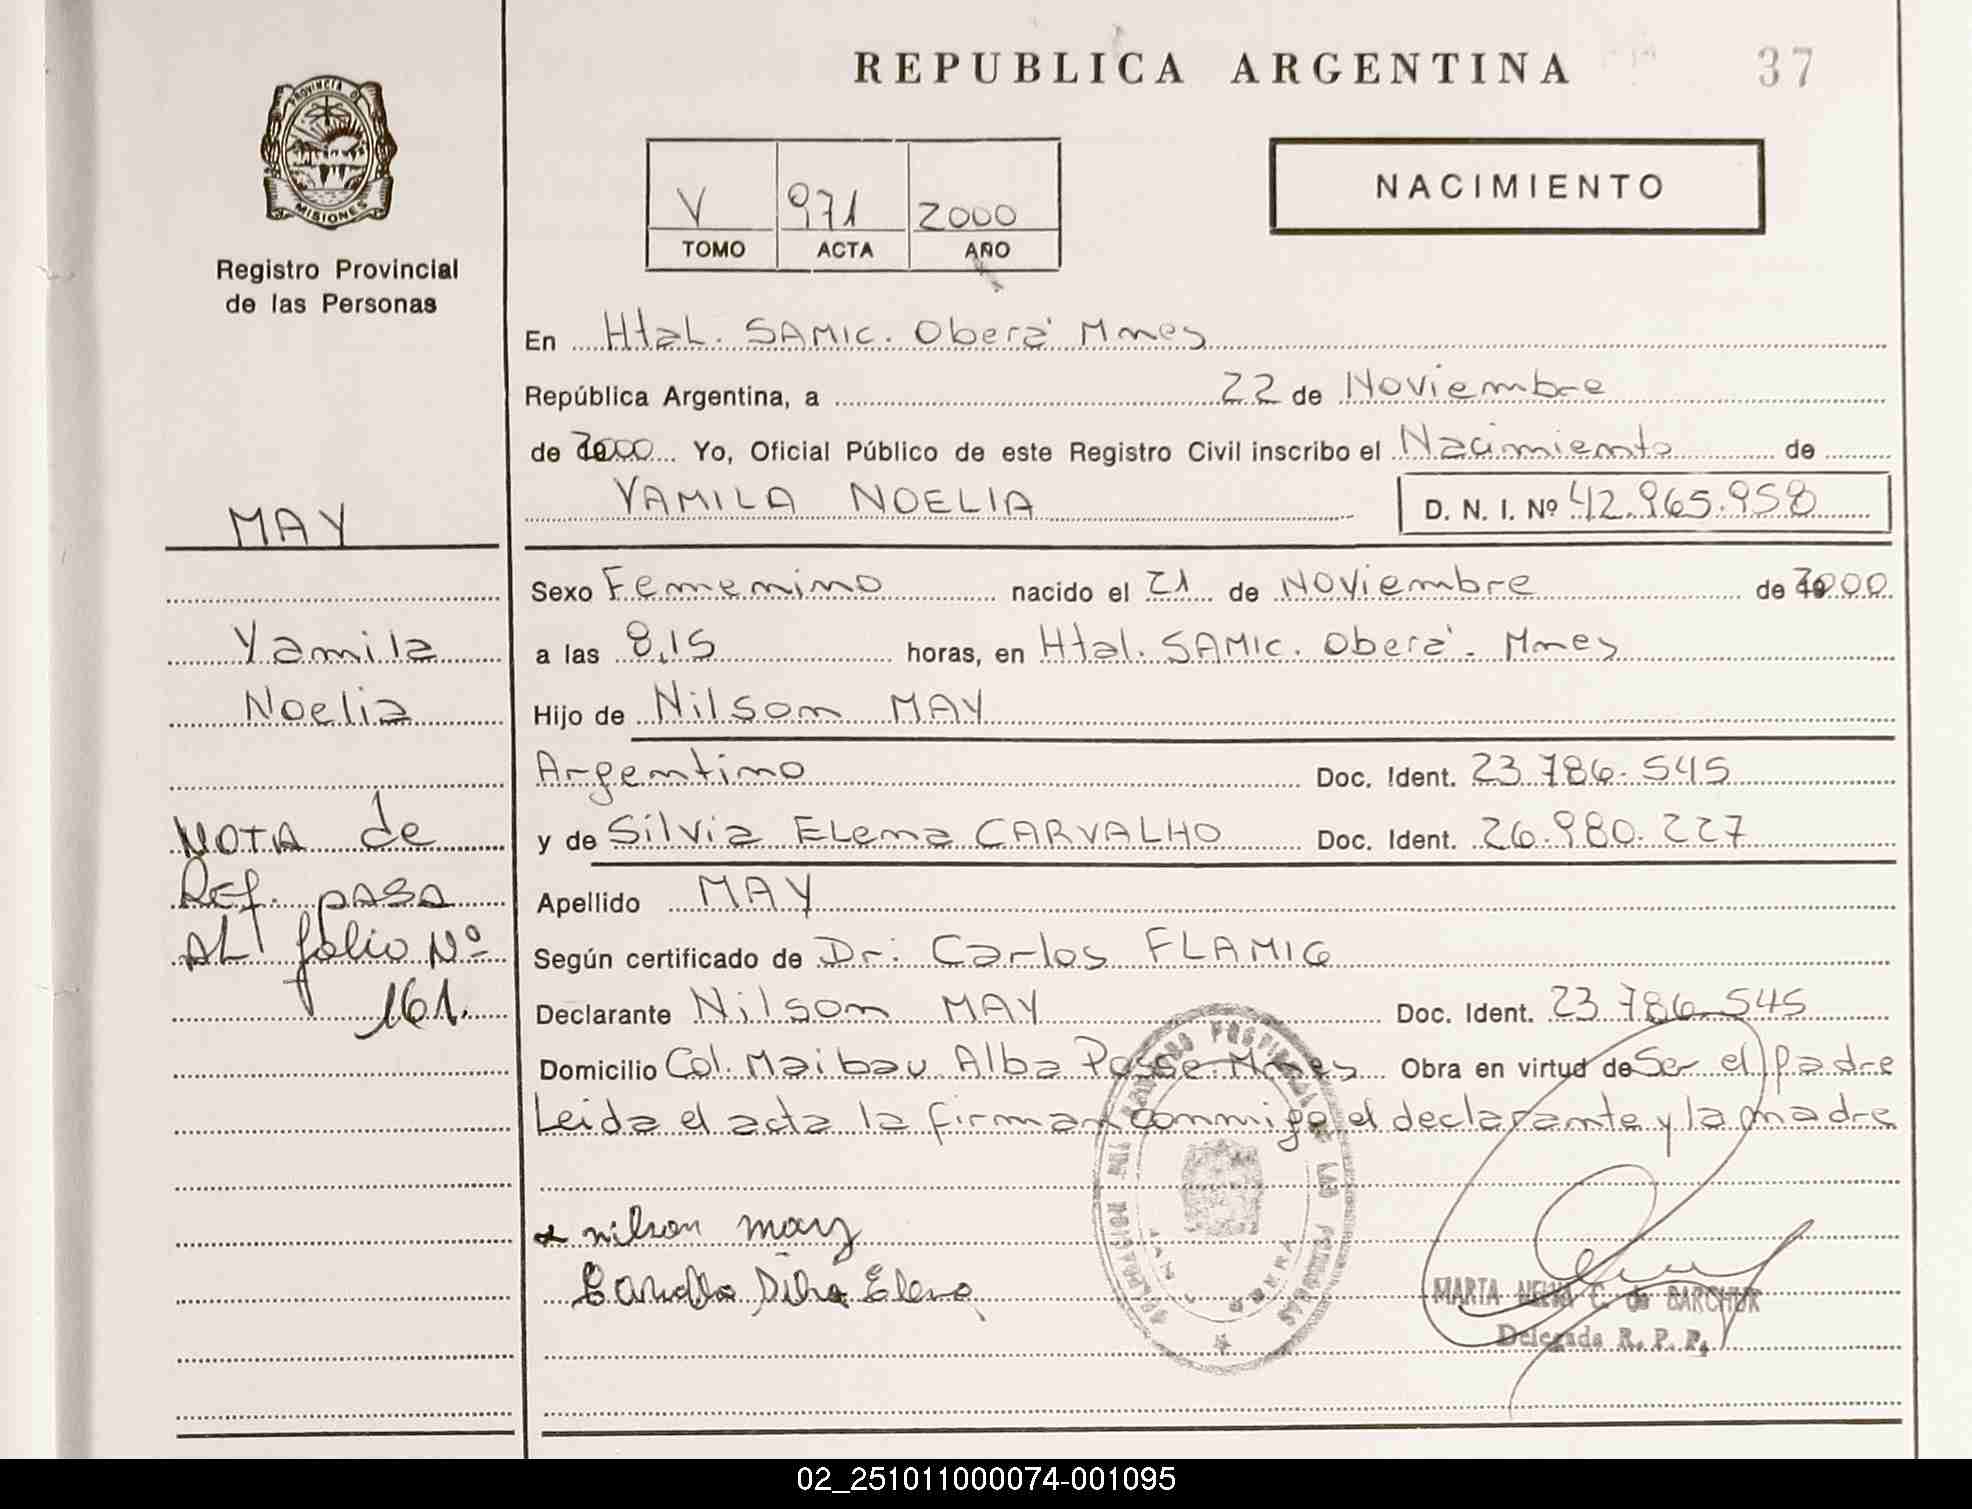 REPUBLICA ARGENTINA 37
PROVINCIA DE
MISIONES
Registro Provincial
de las Personas
V 971 2000
TOMO ACTA AÑO
NACIMIENTO
En Htal. SAMIC. Oberá Mnes
República Argentina, a 22 de Noviembre
de 2000 Yo, Oficial Público de este Registro Civil inscribo el Nacimiento de
YAMILA NOELIA D. N. I. Nº 42.965.958
MAY
Yamila
Noelia
NOTA de
Ref. pASA
AL folio Nº
161.
Sexo Femenino nacido el 21 de Noviembre de 2000
a las 8,15 horas, en Htal. SAMIC. Oberá. Mnes
Hijo de Nilson MAY
Argentino Doc. Ident. 23.786.545
y de Silvia Elena CARVALHO Doc. Ident. 26.980.227
Apellido MAY
Según certificado de Dr: Carlos FLAMIG
Declarante Nilson MAY Doc. Ident. 23.786.545
Domicilio Col. Maibau Alba Posse Mnes Obra en virtud de Ser el padre
Leida el acta la firman conmigo el declarante y la madre
nilson may
Silva Elena
MARTA NELVA C. de BARCHUK
Delegada R. P. P.
02_251011000074-001095